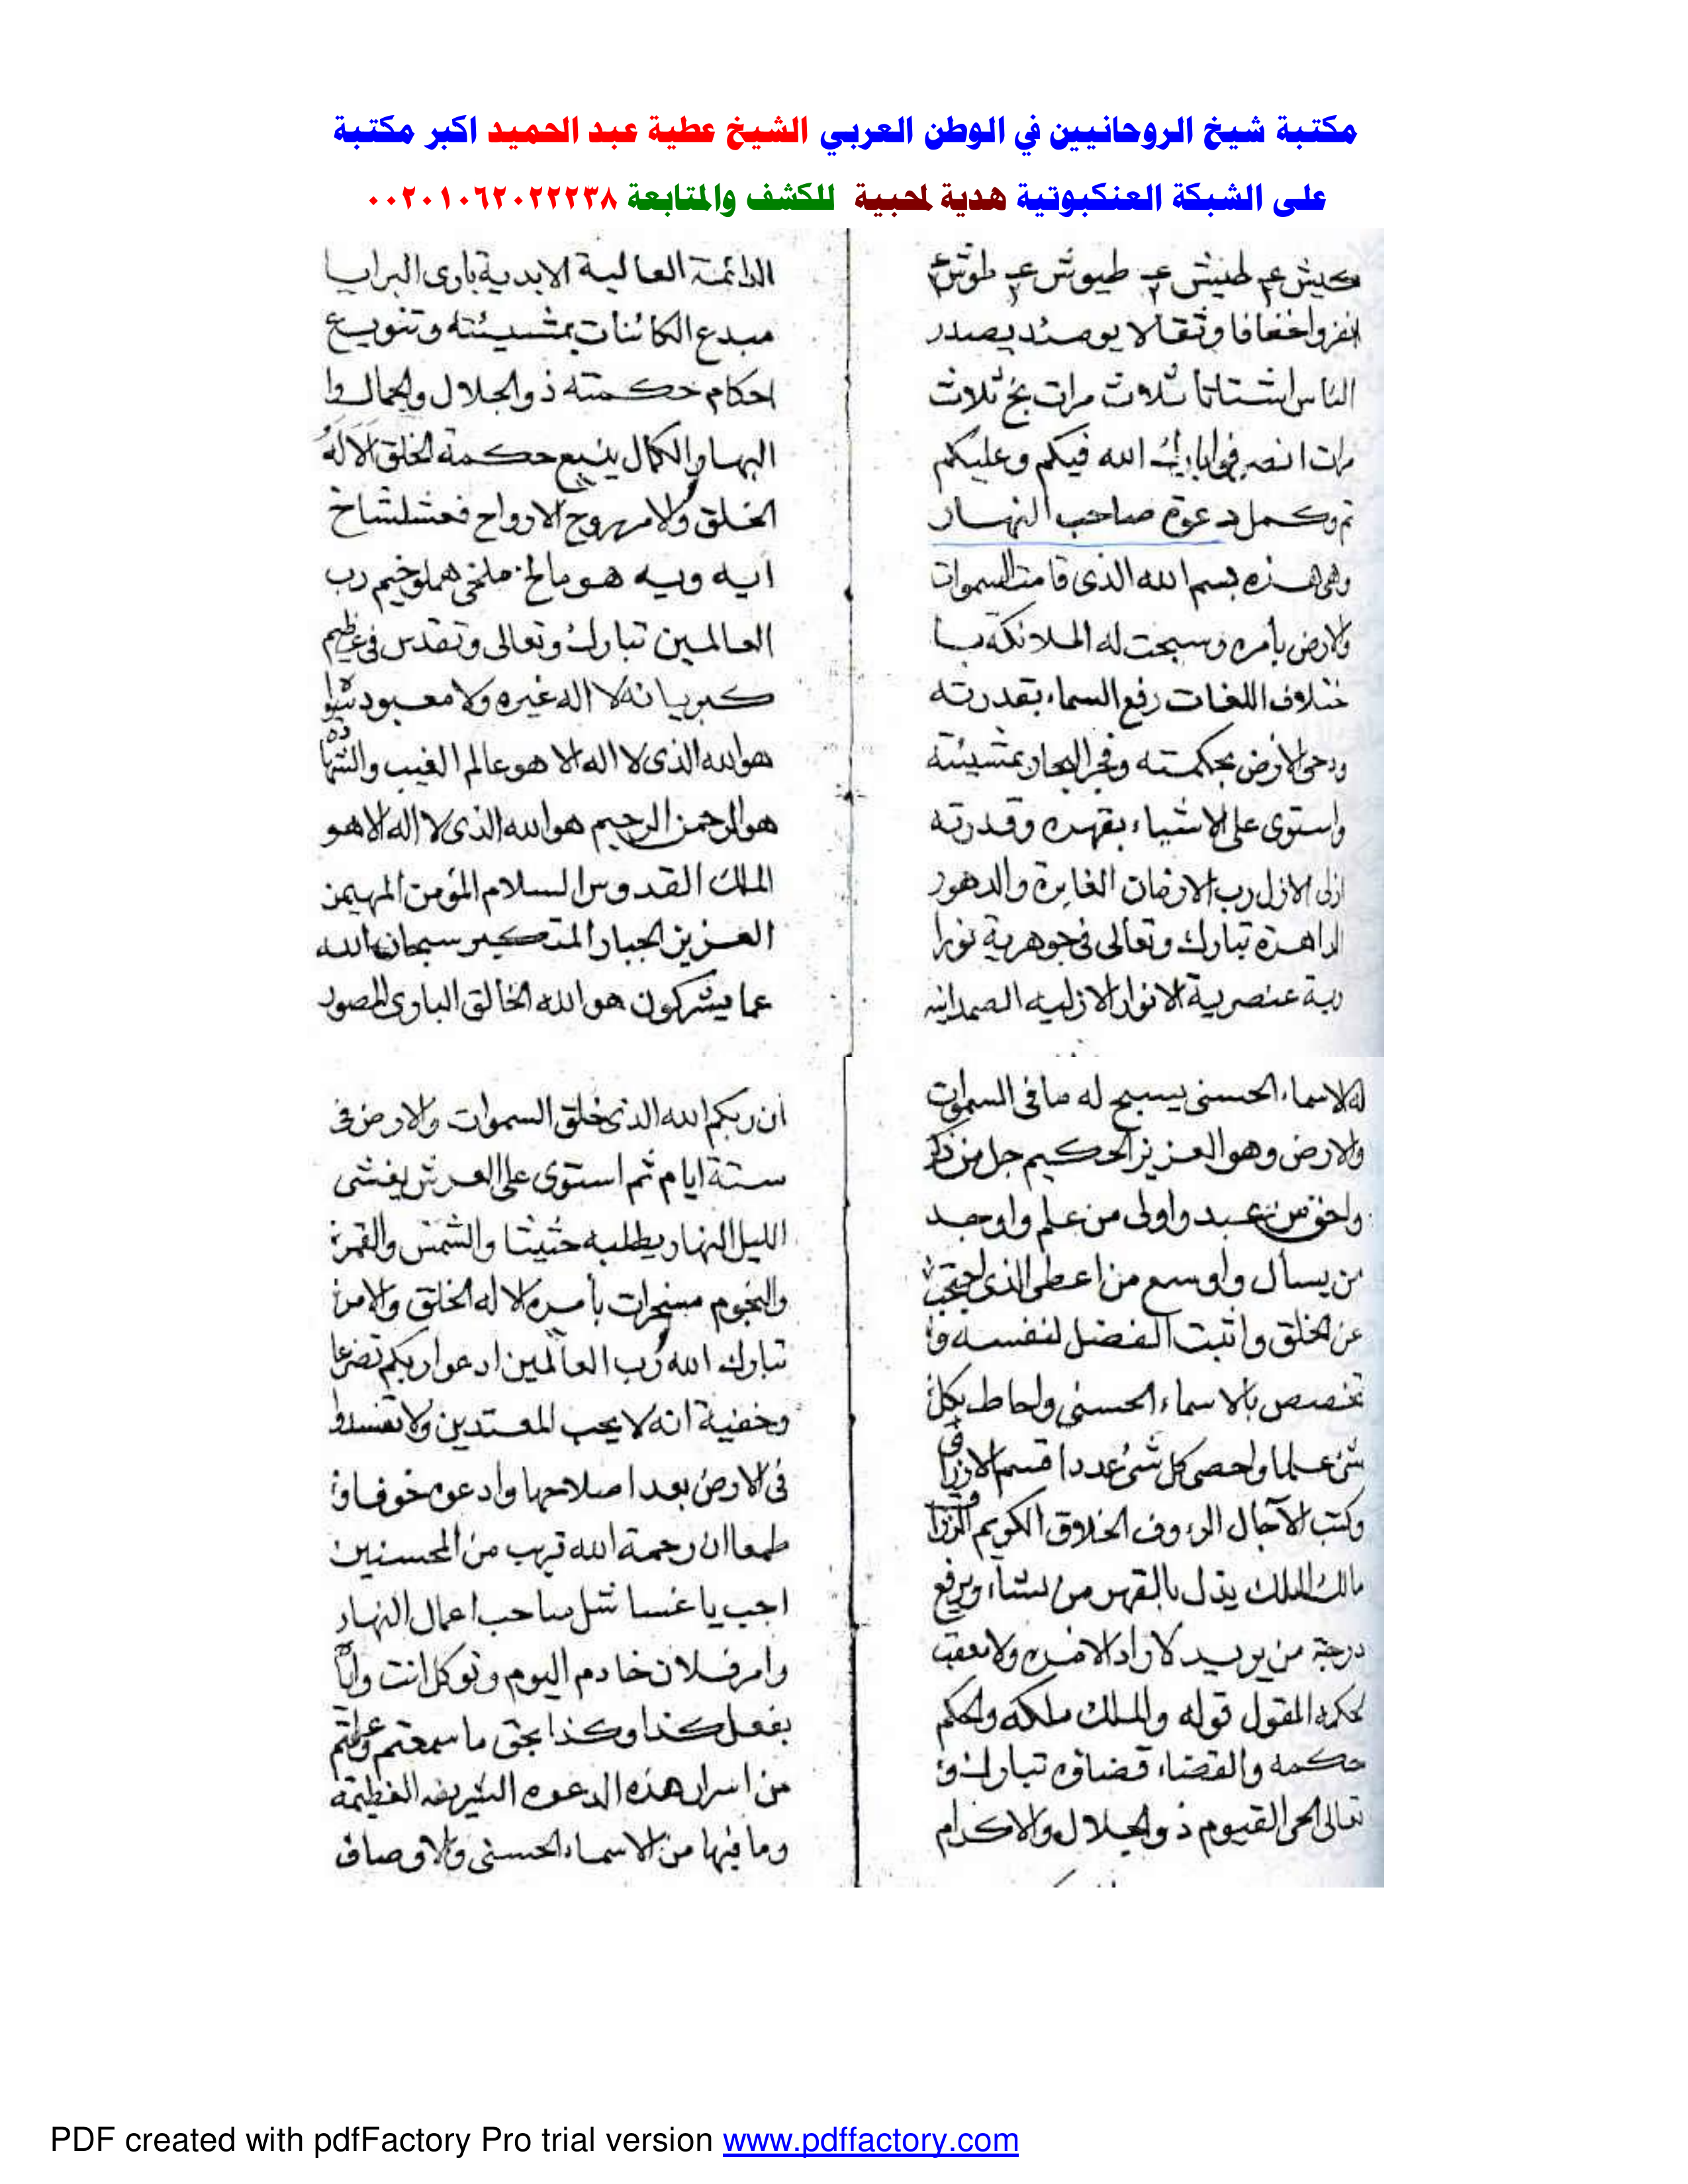 مكتبة شيخ الروحانيين في الوطن العربي الشيخ عطية عبد الحميد اكبر مكتبة
على الشبكة العنكبوتية هدية لمحبية للكشف والمتابعة ٠٠٢٠١٠٦٢٠٢٢٢٣٨
طيوش
انفروا خفافا وثقالا يومئذ يصدر
الناس اشتاتا ثلاوث مرات بخ ثلاث
مرات انصرفوا بارك الله فيكم وعليكم
تم وكمل دعوة صاحب النهار
وهى هذه بسم الله الذى قامت السموات
والارض بأمره وسبحت له الملائكة با
ختلاف اللغات رفع السماء بقدرته
ودحى الارض بحكمته وفجر البحار بمشيئته
واستوى على الاشياء بقهره وقدرته
ازلى الازل رب الازمان الغابرة والدهور
الداهرة تبارك وتعالى فى جوهرية نورا
نية عنصرية الانوار الازليه الصمدانيه
الدائمة العالية الابدية بارى البرايا
مبدع الكائنات بمشيئته وتنويع
احكام حكمته ذو الجلال والجمال وا
البهاء والكمال ينبيع حكمة الخلق الا له
الخلق والامر روح الارواح
ايه ويه هو رب
العالمين تبارك وتعالى وتقدس فى عظيم
كبريائه لا اله غيره ولا معبود سواه
هو الله الذى لا اله الا هو عالم الغيب والشهادة
هو الرحمن الرحيم هو الله الذى لا اله الا هو
الملك القدوس السلام المؤمن المهيمن
العزيز الجبار المتكبر سبحان الله
عما يشركون هو الله الخالق البارى المصور
له الاسماء الحسنى يسبح له ما فى السموات
والارض وهو العزيز الحكيم جل من ذكر
واحق من عبد واولى من علم واوجد
من يسأل واوسع من اعطى الذى احتجب
عن الخلق واثبت الفضل لنفسه وا
تخصص بالاسماء الحسنى واحاط بكل
شئ علما واحصى كل شئ عددا قسم الارزاق
وكتب الآجال الرءوف الخلاق الكريم الرزاق
مالك الملك يذل بالقهر من يشاء ويرفع
درجة من يريد لا راد لامره ولا معقب
لحكمه المقول قوله والملك ملكه والحكم
حكمه والقضاء قضاؤه تبارك و
تعالى الحى القيوم ذو الجلال والاكرام
ان ربكم الله الذى خلق السموات والارض فى
ستة ايام ثم استوى على العرش يغشى
الليل النهار يطلبه حثيثا والشمس والقمر
والنجوم مسخرات بأمره الا له الخلق والامر
تبارك الله رب العالمين ادعوا ربكم تضرعا
وخفية انه لا يحب المعتدين ولا تفسدوا
فى الارض بعد اصلاحها وادعوه خوفا و
طمعا ان رحمة الله قريب من المحسنين
اجب يا صاحب اعمال النهار
وامر فلان خادم اليوم وتوكل انت واياه
بفعل كذا وكذا بحق ما سمعتم وعلمتم
من اسرار هذه الدعوه الشريفه العظيمه
وما فيها من الاسماء الحسنى والاوصاف
PDF created with pdfFactory Pro trial version www.pdffactory.com